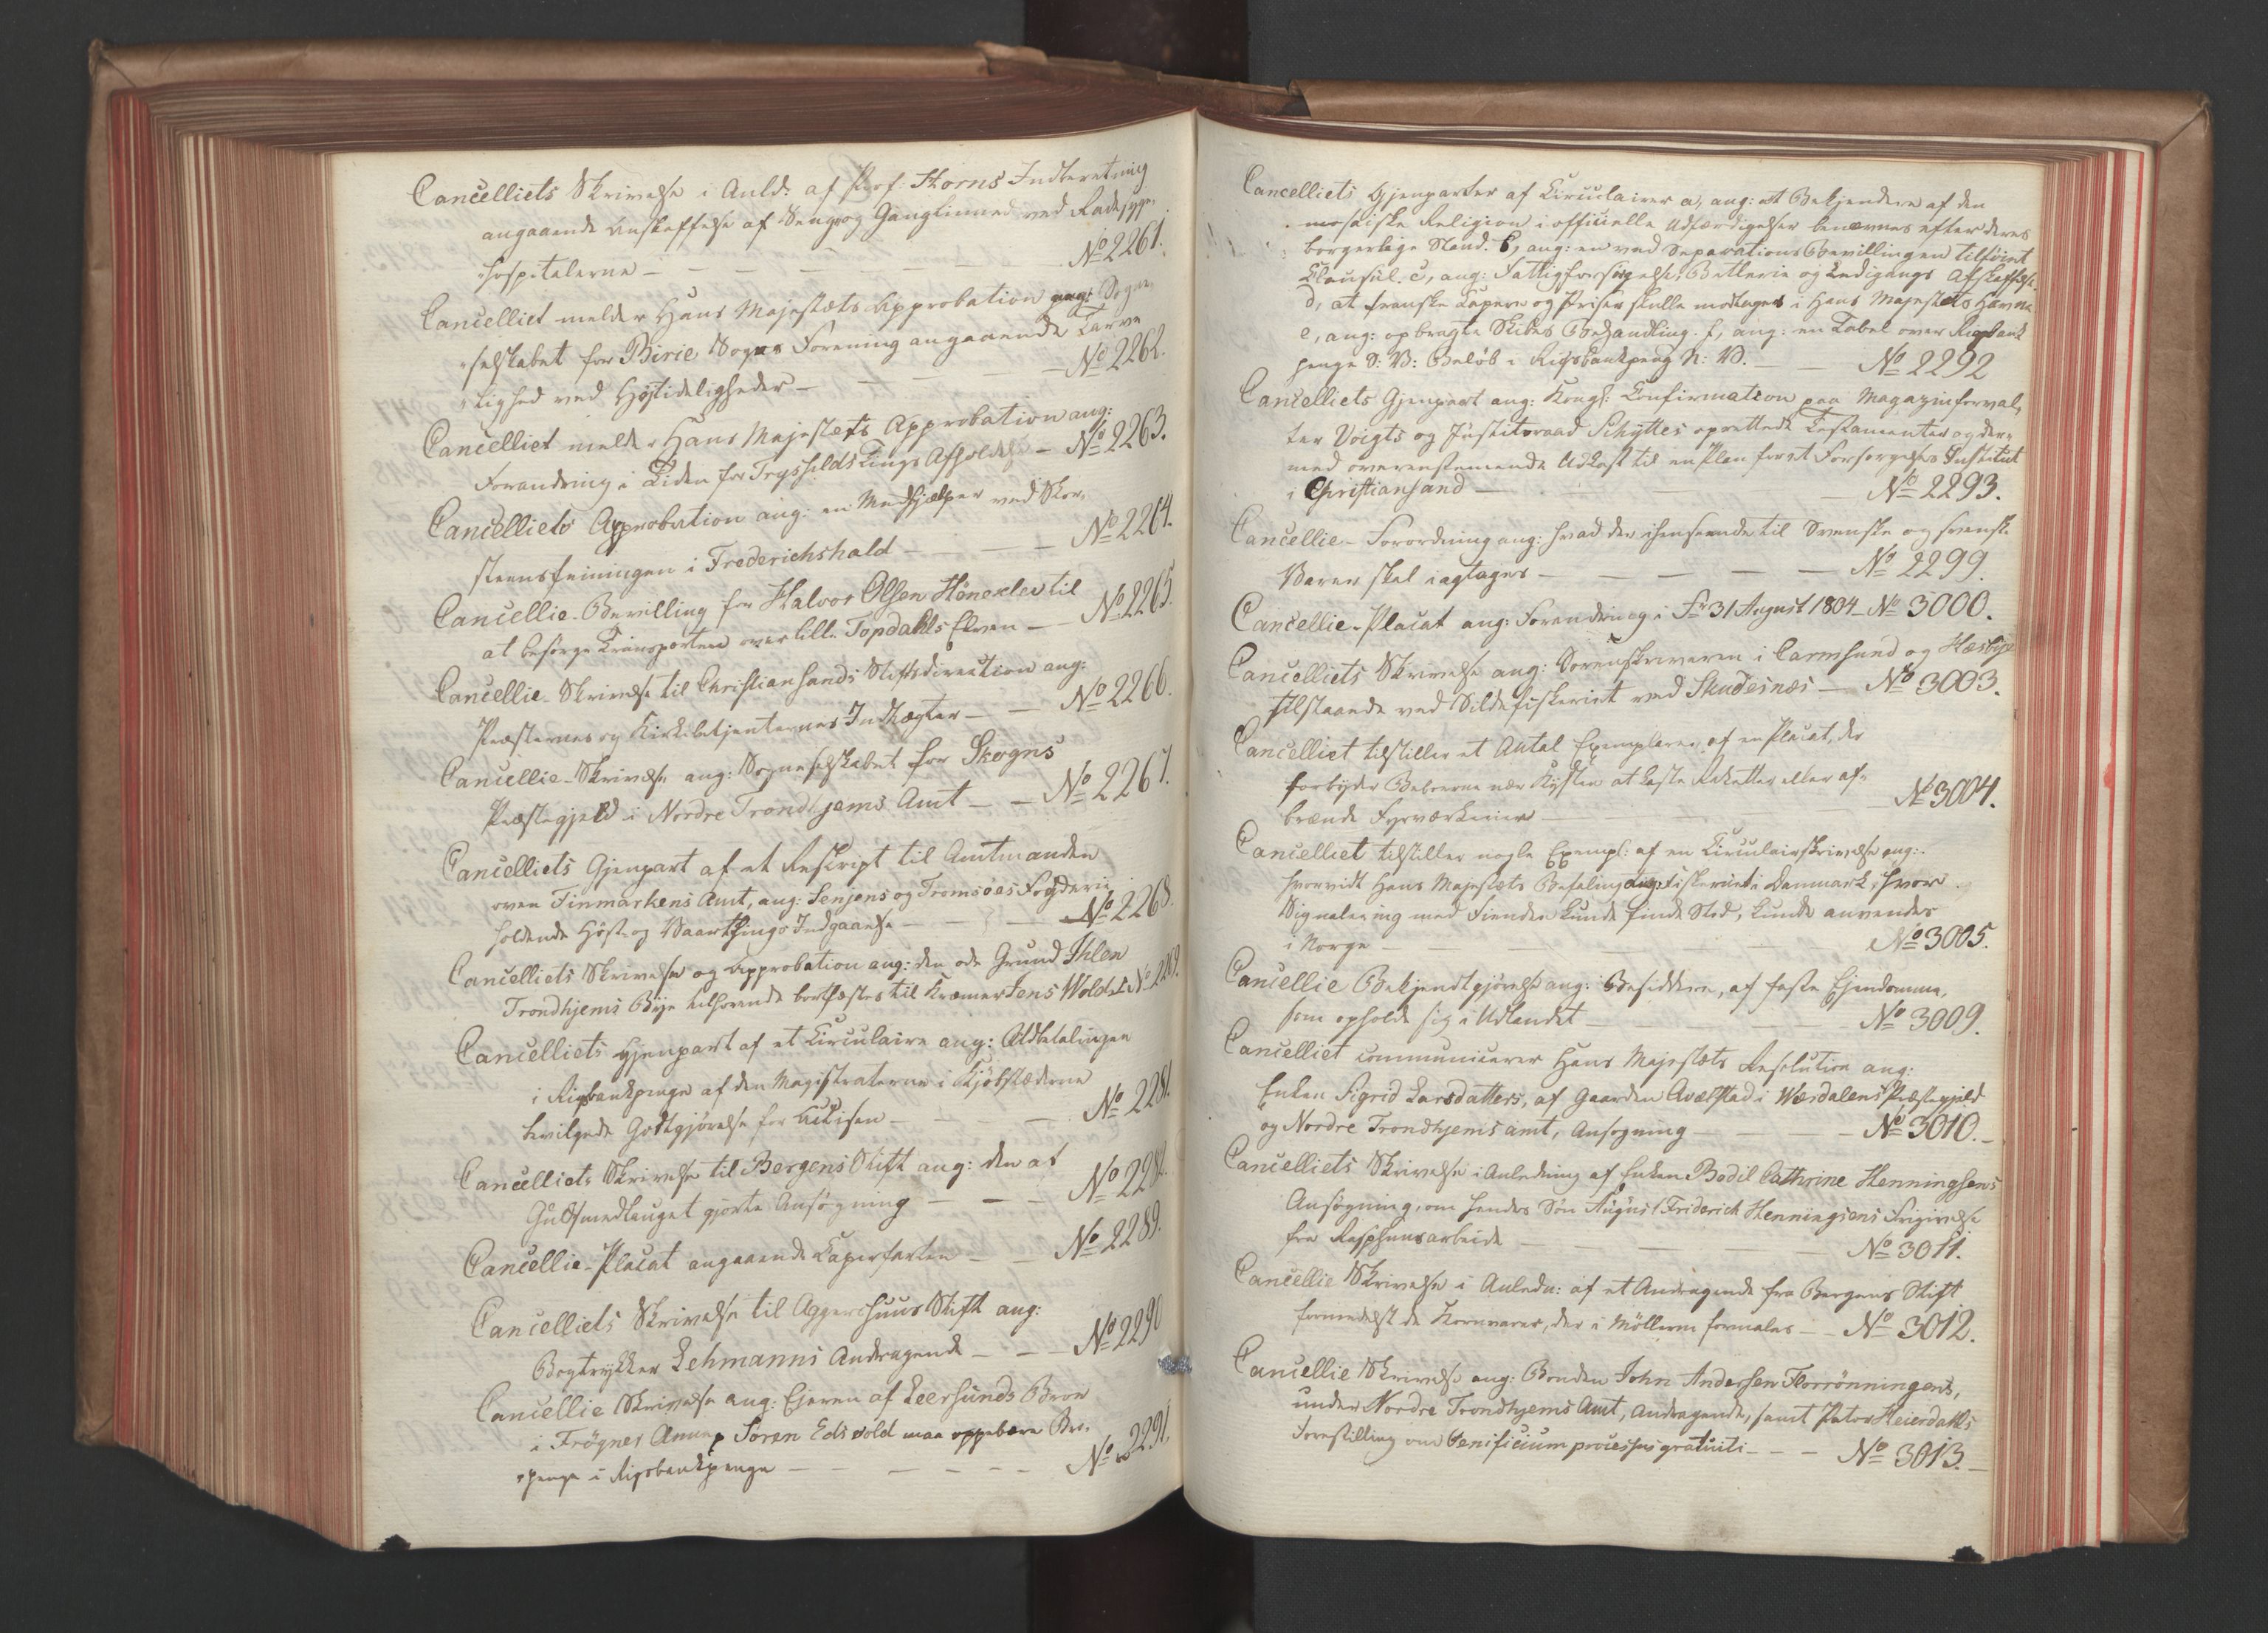 Cancelliets Skrivelse i Anld: af Prof: Horns Indberetning
angaaende Anskaffelse af Seng og Ganglinned ved Radesyge-
"hospitalerne — No 2261.
Cancelliet melder Hans Majestæts Approbation ang: Sogne-
"selskabet for Birie Sogns Forening angaaende Tarve-
"lighed ved Høitideligheder — No 2262.
Cancelliet melder Hans Majestets Approbation ang:
Forandring i Tiden for Trysilds Tings Afholdelse — No 2263.
Cancelliets Approbation ang: en Medhjælper ved Skor-
steensfeiningen i Frederichshald — No 2264.
Cancellie-Bevilling for Halvor Olsen Hönexlev til
at besörge Transporten over lille Topdahls Elven — No 2265.
Cancellie-Skrivelse til Christiansands Stiftsdirection ang:
Præsternes og Kirkebetjenternes Indtægter — No 2266.
Cancellie-Skrivelse ang: Sogneselskabet for Skogns
Præstegjeld i Nordre Trondhjems Amt — No 2267.
Cancelliets Gjenpart af et Rescript til Amtmanden
over Finmarkens Amt, ang: Senjens og Tromsöes Fogderie
holdende Höst- og Vaarthings Indgaaelse — No 2268.
Cancelliets Skrivelse og Approbation ang: den øde Grund Ihlen
Trondhjems Bye tilhörende bortfæstes til Kræmer Jens Wolds No 2269.
Cancelliets Gjenpart af et Circulaire ang: Udbetalingen
i Rigsbankpenge af den Magistraterne i Kjöbstæderne
bevilgede Godtgjörelse for Accisen — No 228
Cancelliets Skrivelse til Bergens Stift ang: den af
Guldsmedlauget gjorte Ansögning — No 228
Cancellie-Placat angaaende Kaperfarten — No 2289.
Cancelliets Skrivelse til Aggershuus Stift ang:
Bogtrykker Lehmanns Andragende — No 2290
Cancellie Skrivelse ang: Eieren af Leersunds Broe
i Frögner Annex Sören Edsvold maa oppebære Bro-
"penge i Rigsbankpenge — No 2291.
Cancelliets Gjenparter af Circulairer a, ang: at Bekjendere af den
mosaiske Religion i officielle Udfærdigelser benævnes efter deres
borgerlige Stand. b, ang: en ved Separations Bevillingen tilföiet
Clausul. c, ang: Fattigforsörgelse, Betlerie og Ledigangs Afskaffelse.
d, at franske Kapere og Priser skulle modtages i Hans Majestæts Havne
e, ang: opbragte Skibes Behandling. f, ang: en Tabel over Rigsbank
penge S: V: Belöb i Rigsbankpeng N: V. — No 2292
Cancelliets Gjenpart ang: Kongl: Confirmation paa Magazinforval-
ter Voigts og Justitsraad Schyttes oprettede Testamenter og der-
med overenstemmende Udkast til en Plan for et Forsörgelses Institut
i Christiansand — No 2293.
Cancellie-Forordning ang: hvad der i henseende til Svenske og svenske
Varer skal iagtages — No 2299.
Cancellie-Placat ang: Forandring i Fr 31 August 1804 — No 3000.
Cancelliets Skrivelse ang: Sorenskriveren i Carmsund og Hæsbye
tilstaaende ved Sildefiskeriet ved Skudesnæs — No 3003.
Cancelliet tilstiller et Antal Exemplarer af en Placat, der
forbyder Beboerne nær Kysten at kaste Raketter eller af-
brænde Fyrværkerier — No 3004.
Cancelliet tilstiller nogle Exempl: af en Circulairskrivelse ang:
hvorvidt Hans Majestæts Befaling ang: Fiskeriet i Danmark, hvor
Signalering med Fienden kunde finde Sted, kunde anvendes
i Norge — No 3005.
Cancellie Bekjendtgjörelse ang: Besiddere, af faste Ejendomme,
som opholde sig i Udlandet — No 3009.
Cancelliet communicerer Hans Majestæts Resolution ang:
Enken Sigrid Larsdatters, af Gaarden Avelstad i Værdalens Præstegjeld
og Nordre Trondhjems amt, Ansögning — No 3010.
Cancelliets Skrivelse i Anledning af Enken Bodil Cathrine Henningsens
Ansögning, om hendes Sön August Friderich Henningsens Frigivelse
fra Rasphuusarbeide — No 3011.
Cancellie Skrivelse i Anledn: af et Andragende fra Bergens Stift
formedelst de Kornvarer, der i Möllerne formales — No 3012.
Cancellie Skrivelse ang: Bonden John Andersen Florrönningens,
under Nordre Trondhjems Amt, Andragende, samt Pator Heierdahls
Forestilling om Beneficium processus gratuiti — No 3013.